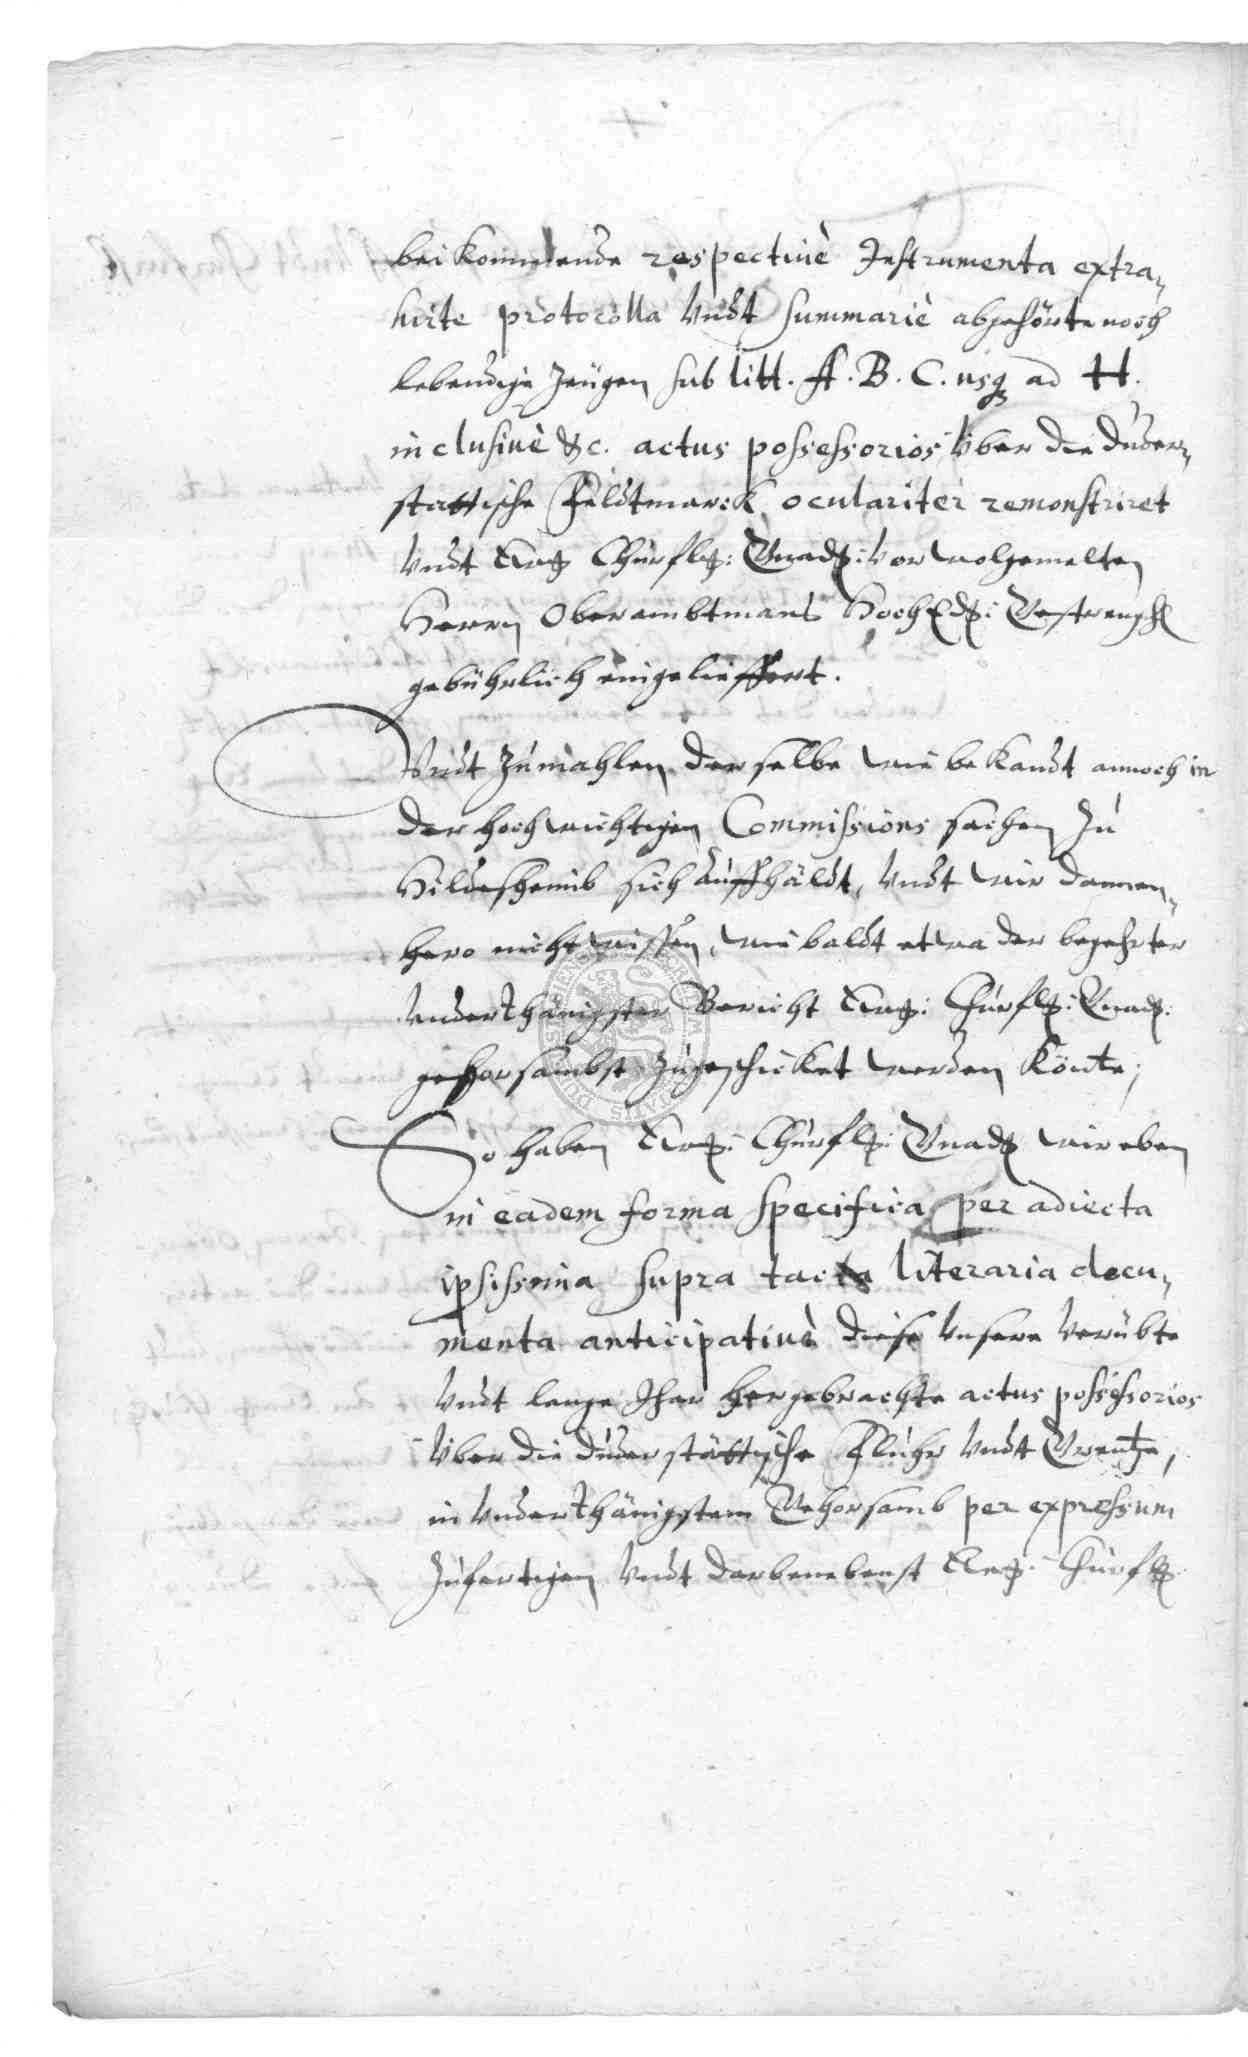 beikommende respectivè Instrumenta extra-
hirte protocolla Vndt summariè abgehörte noch
lebendige Zeugen sub litt. A. B. C. usq ad H.
inclusivè &c. actus possessorios Vber die Duder-
stattische Feldtmarck oculariter remonstriret
Vndt Ewg Churflg: Gnadg: Vor wolgemelten
Herrn Oberambtmans HochEdg: Gestrengh
gebührlich eingelieffert.
Vndt Zumahlen derselbe wie bekandt annoch in
der hochwichtigen Commissions sachen Zu
Hildesheimb sich auffhäldt, Vndt wir dannen-
hero nicht wissen, wie baldt etwa der begehrter
Vnderthänigster Bericht Ewg: Churflg: Gnadg:
gehorsambst Zugeschicket werden könte;
So haben Ewg: Churflg: Gnadg wir eben
in eadem forma specifica per adiecta
ipsissima supra tacta literaria docu-
menta anticipativè diese Vnsere Verübte
Vndt lange Ihar hergebrachte actus possessorios
Vber die Duderstättische Fluhr Vndt Grentze,
in Vnderthänigstem Gehorsamb per expressum
Zufertigen Vndt darbenebenst Ewg: Churflg